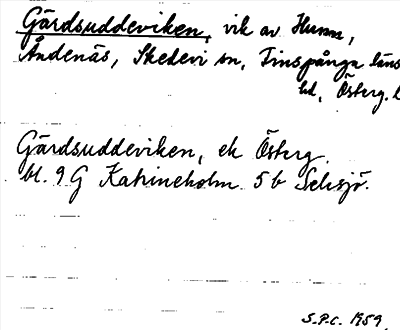 Gärdsuddeviken, vik av Hunn,
Åndenäs, Skedevi sn, Finspånga läns
hd, Österg. l
Gärdsuddeviken, ek Österg.
bl. 9 G Katrineholm 5 b Selesjö.
S.P.C. 1959